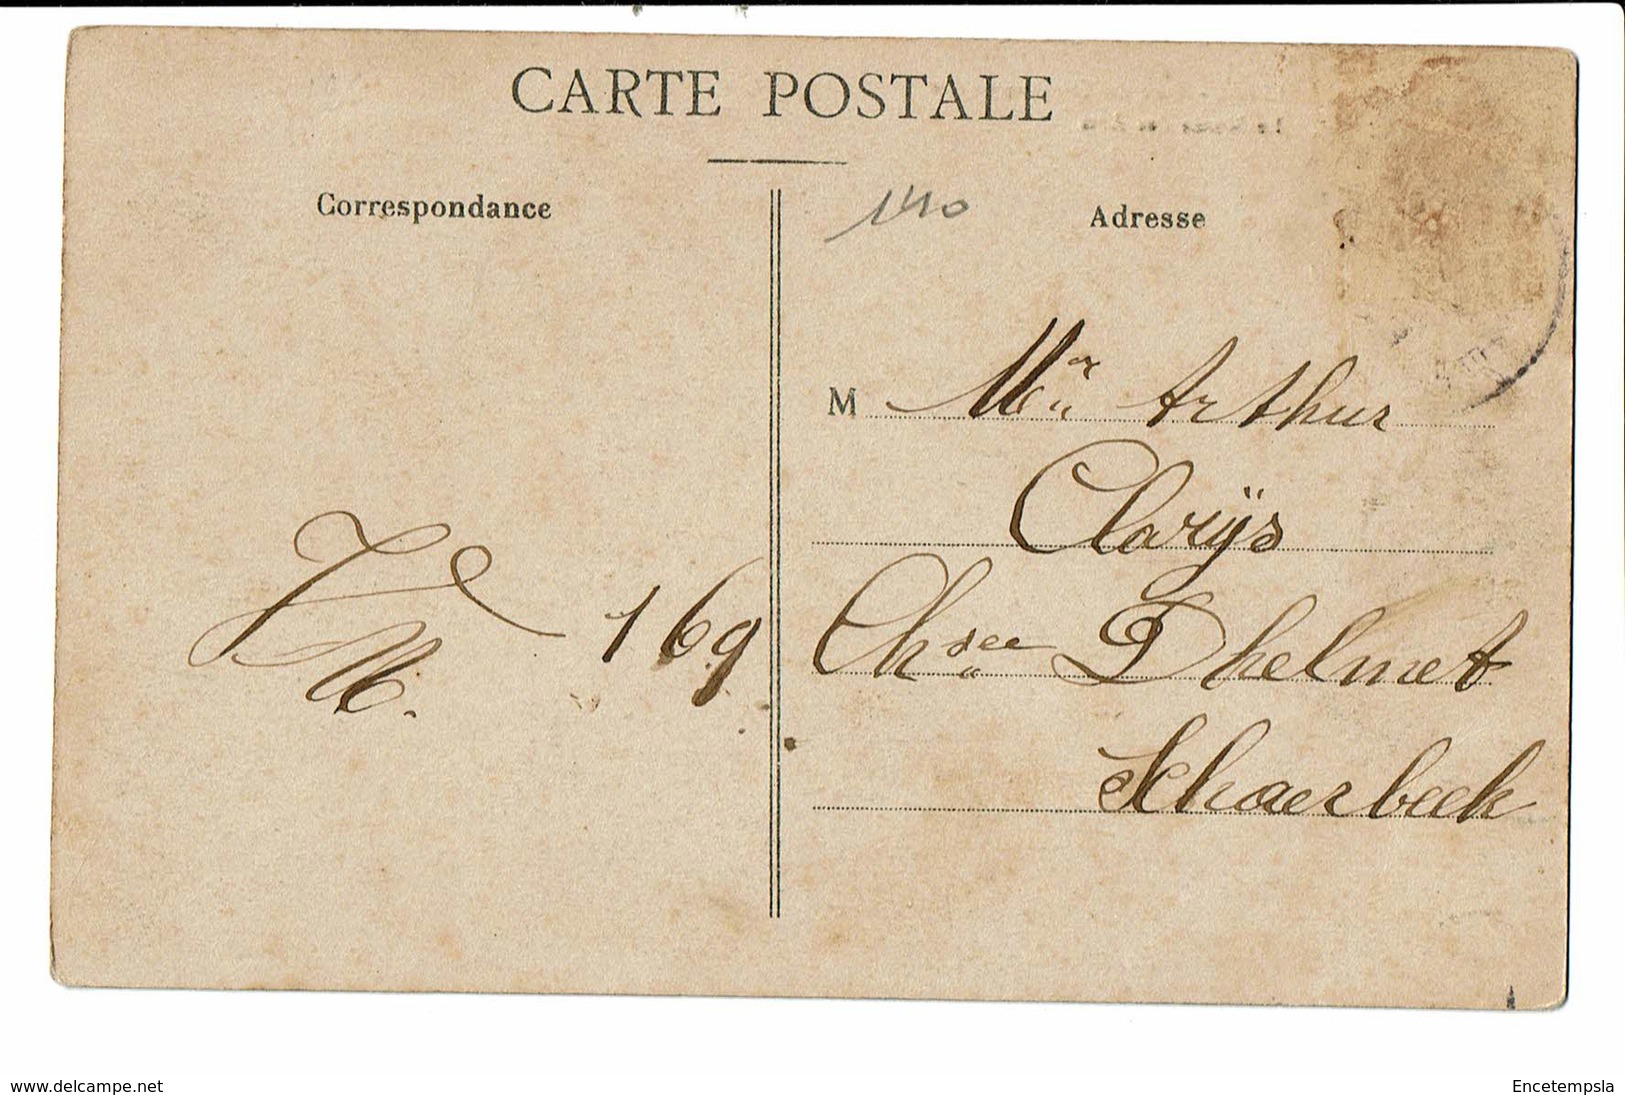 CARTE POSTALE
Correspondance
Adresse
140
M Mr Arthur
Clarÿs
Chsée Dhelmet
Schaerbeek
169
www.delcampe.net
Encetempsla